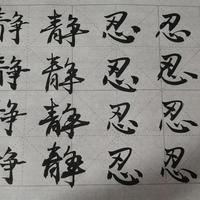 静静忍忍
静静忍忍
静静忍忍
静静忍忍